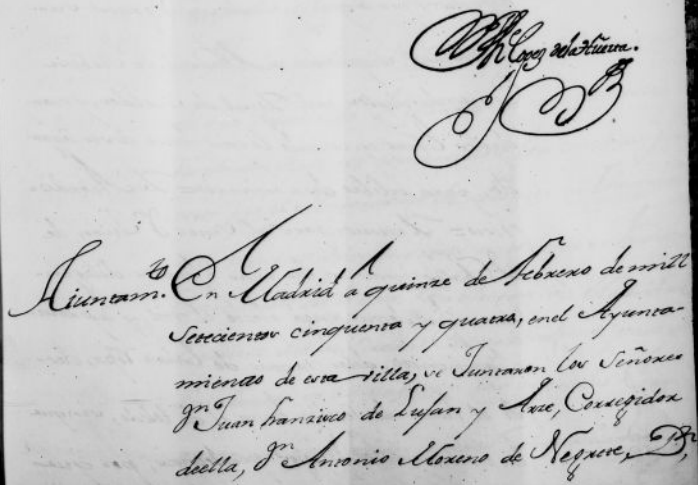 Lopez dela Huerta.
Aiuntam.to En Madrid a quinze de Febrero de mill
Setecientos cinquenta y quatro, enel Ayunta-
miento de esta villa, se Juntaron los Señores
Dn Juan Francisco de Luján y Arze, Corregidor
deella, Dn Antonio Moreno de Negrete,